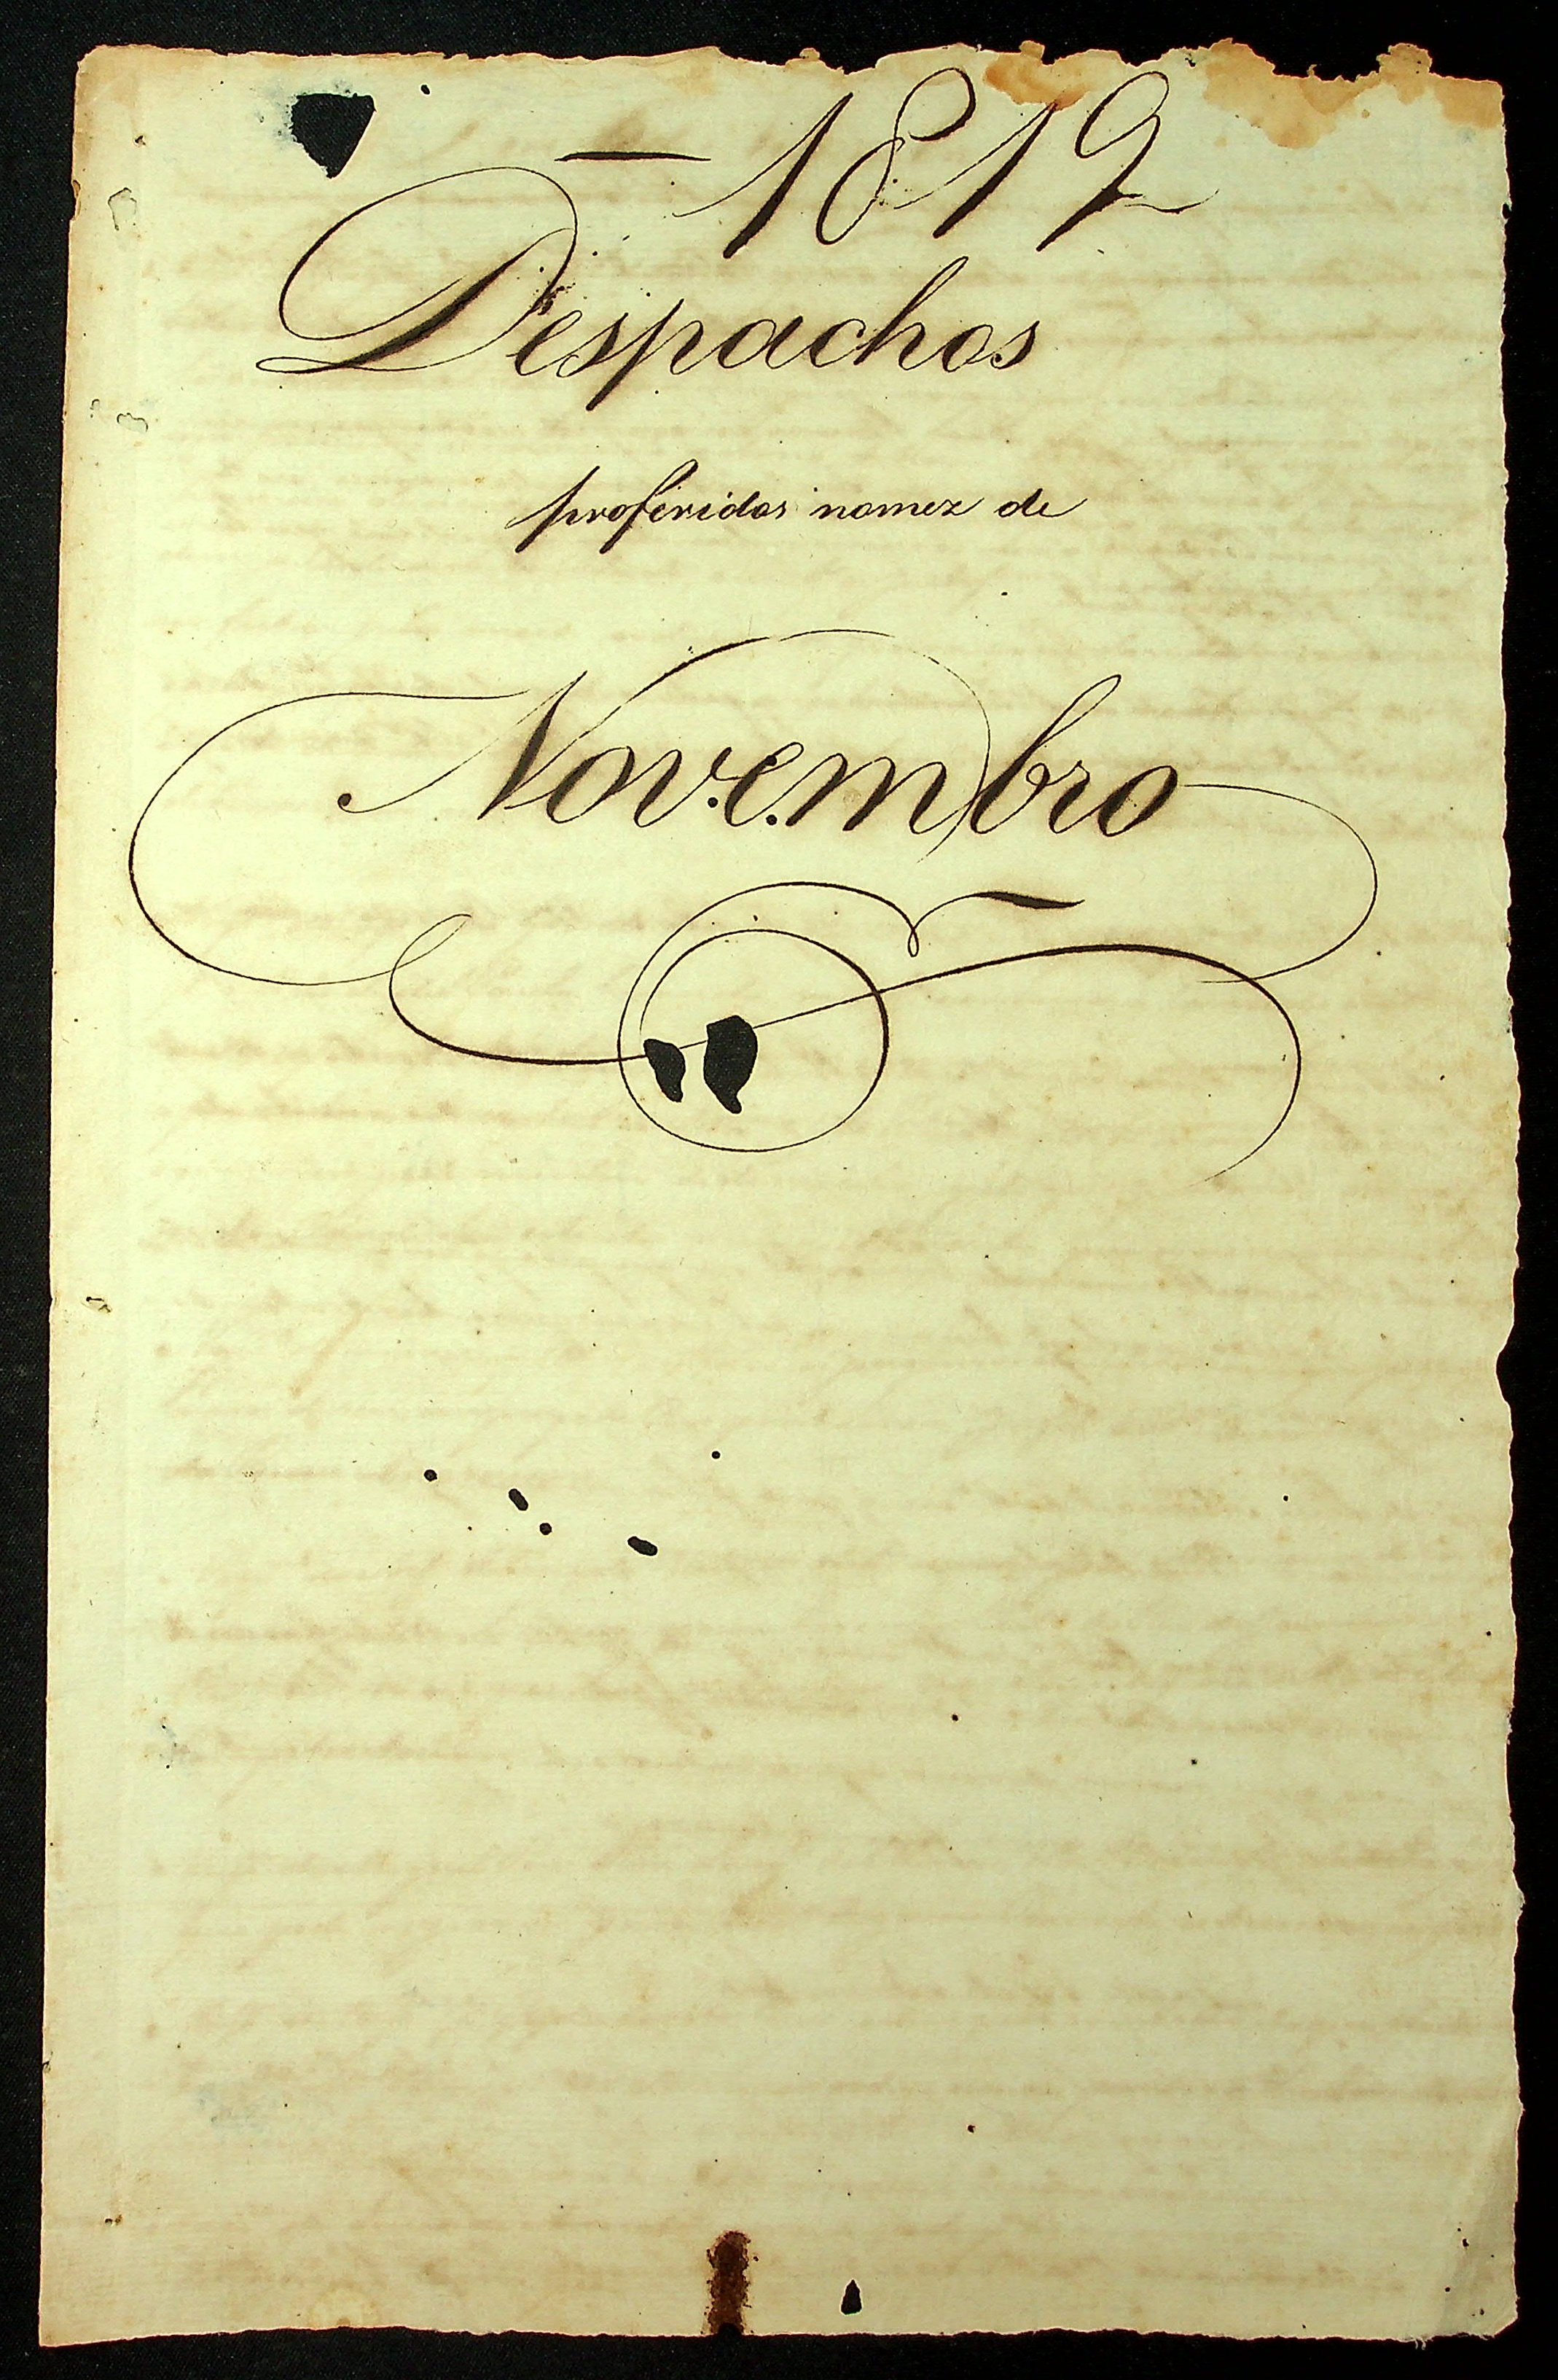 — 1819
Despachos
proferidos nomez de
Novembro